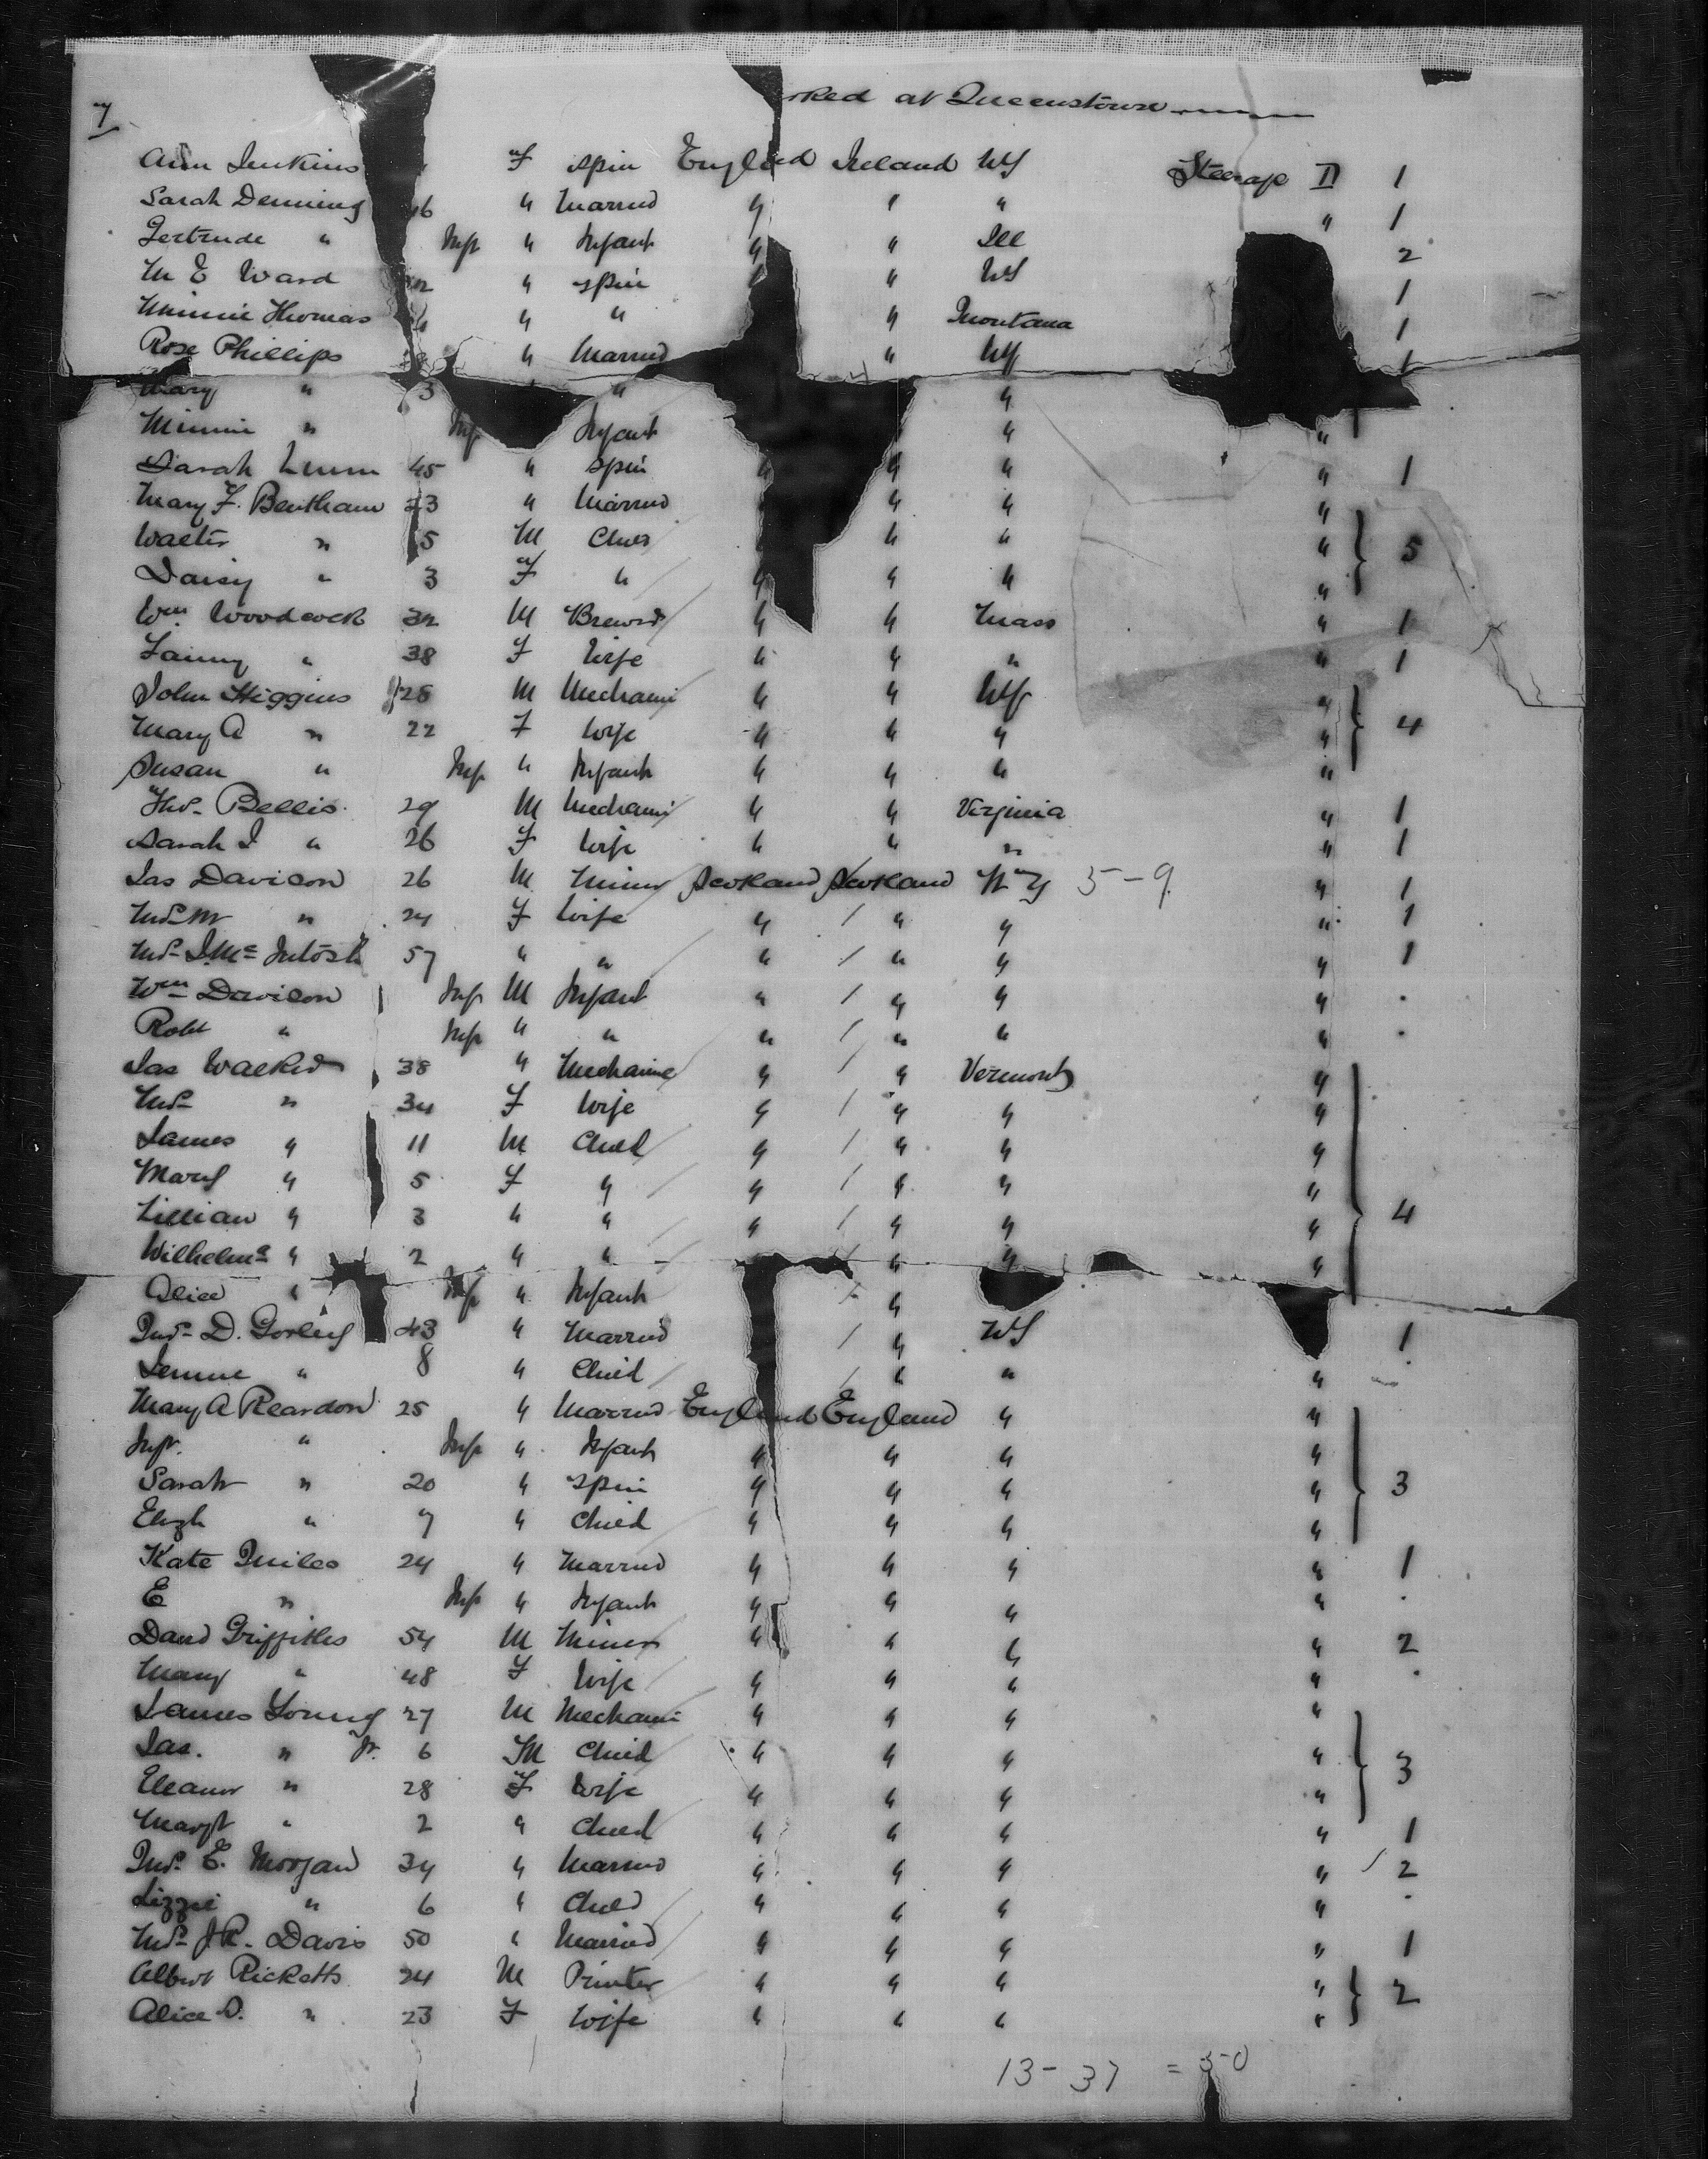 7
rked at Queenstown
Ann Jenkins F Spin England Ireland US Steerage D 1
Sarah Denning 6 " Married " " " " 1
Gertrude " Inft " Infant " " Ill 2
M E Ward 2 " Spin " " US 1
Minnie Thomas " " " Montana 1
Rose Phillips " Married " US 1
Mary " 3 " " "
Minnie " Inf Infant " "
Sarah 45 " Spin " " " " 1
Mary F. Bentham 23 " Married " " "
Walter " 5 M Child " " " " 5
Daisy " 3 F " " " " "
Wm Woodcock 32 M Brewer " " Mass " 1
Fanny " 38 F Wife " " " " 1
John Higgins 28 M Mechanic " " US "
Mary A " 22 F Wife " " " " 4
Susan " Inft " Infant " " " "
Thos Bellis 29 M Mechanic " " Virginia " 1
Sarah J " 26 F Wife " " " " 1
Jas Davison 26 M Miner Scotland Scotland N Y 5-9 " 1
Mrs M " 24 F Wife " " " " 1
Mrs J. McIntosh 57 " " " " " " 1
Wm Davison Inft M Infant " " " "
Robt " Inft " " " " " "
Jas Walker 38 " Mechanic " " Vermont "
Mrs " 34 F Wife " " " "
James " 11 M Child " " " "
Mary " 5 F " " " " "
Lillian " 3 " " " " " " 4
Wilhelma " 2 " " " " "
Alice " Inft " Infant "
Mrs D. 43 " Married " US 1
" 8 " Child " " "
Mary A Reardon 25 " Married England England " "
Inft. " Inft " Infant " " " "
Sarah " 20 " Spin " " " " 3
Elizh " 7 " Child " " " "
Kate Miles 24 " Married " " " " 1
E " Inft " Infant " " " "
David Griffiths 54 M Miner " " " " 2
Mary " 48 F Wife " " " "
James Young 27 M Mechanic " " " "
Jas. " Jr. 6 M Child " " " " 3
Eleanor " 28 F Wife " " " "
Margt " 2 " Child " " " " 1
Mrs E. Morgan 34 " Married " " " " 2
Lizzie " 6 " Child " " " "
Mrs J R. Davis 50 " Married " " " " 1
Albert Ricketts 24 M Printer " " " "
Alice D. " 23 F Wife " " " " 2
13-37 = 50